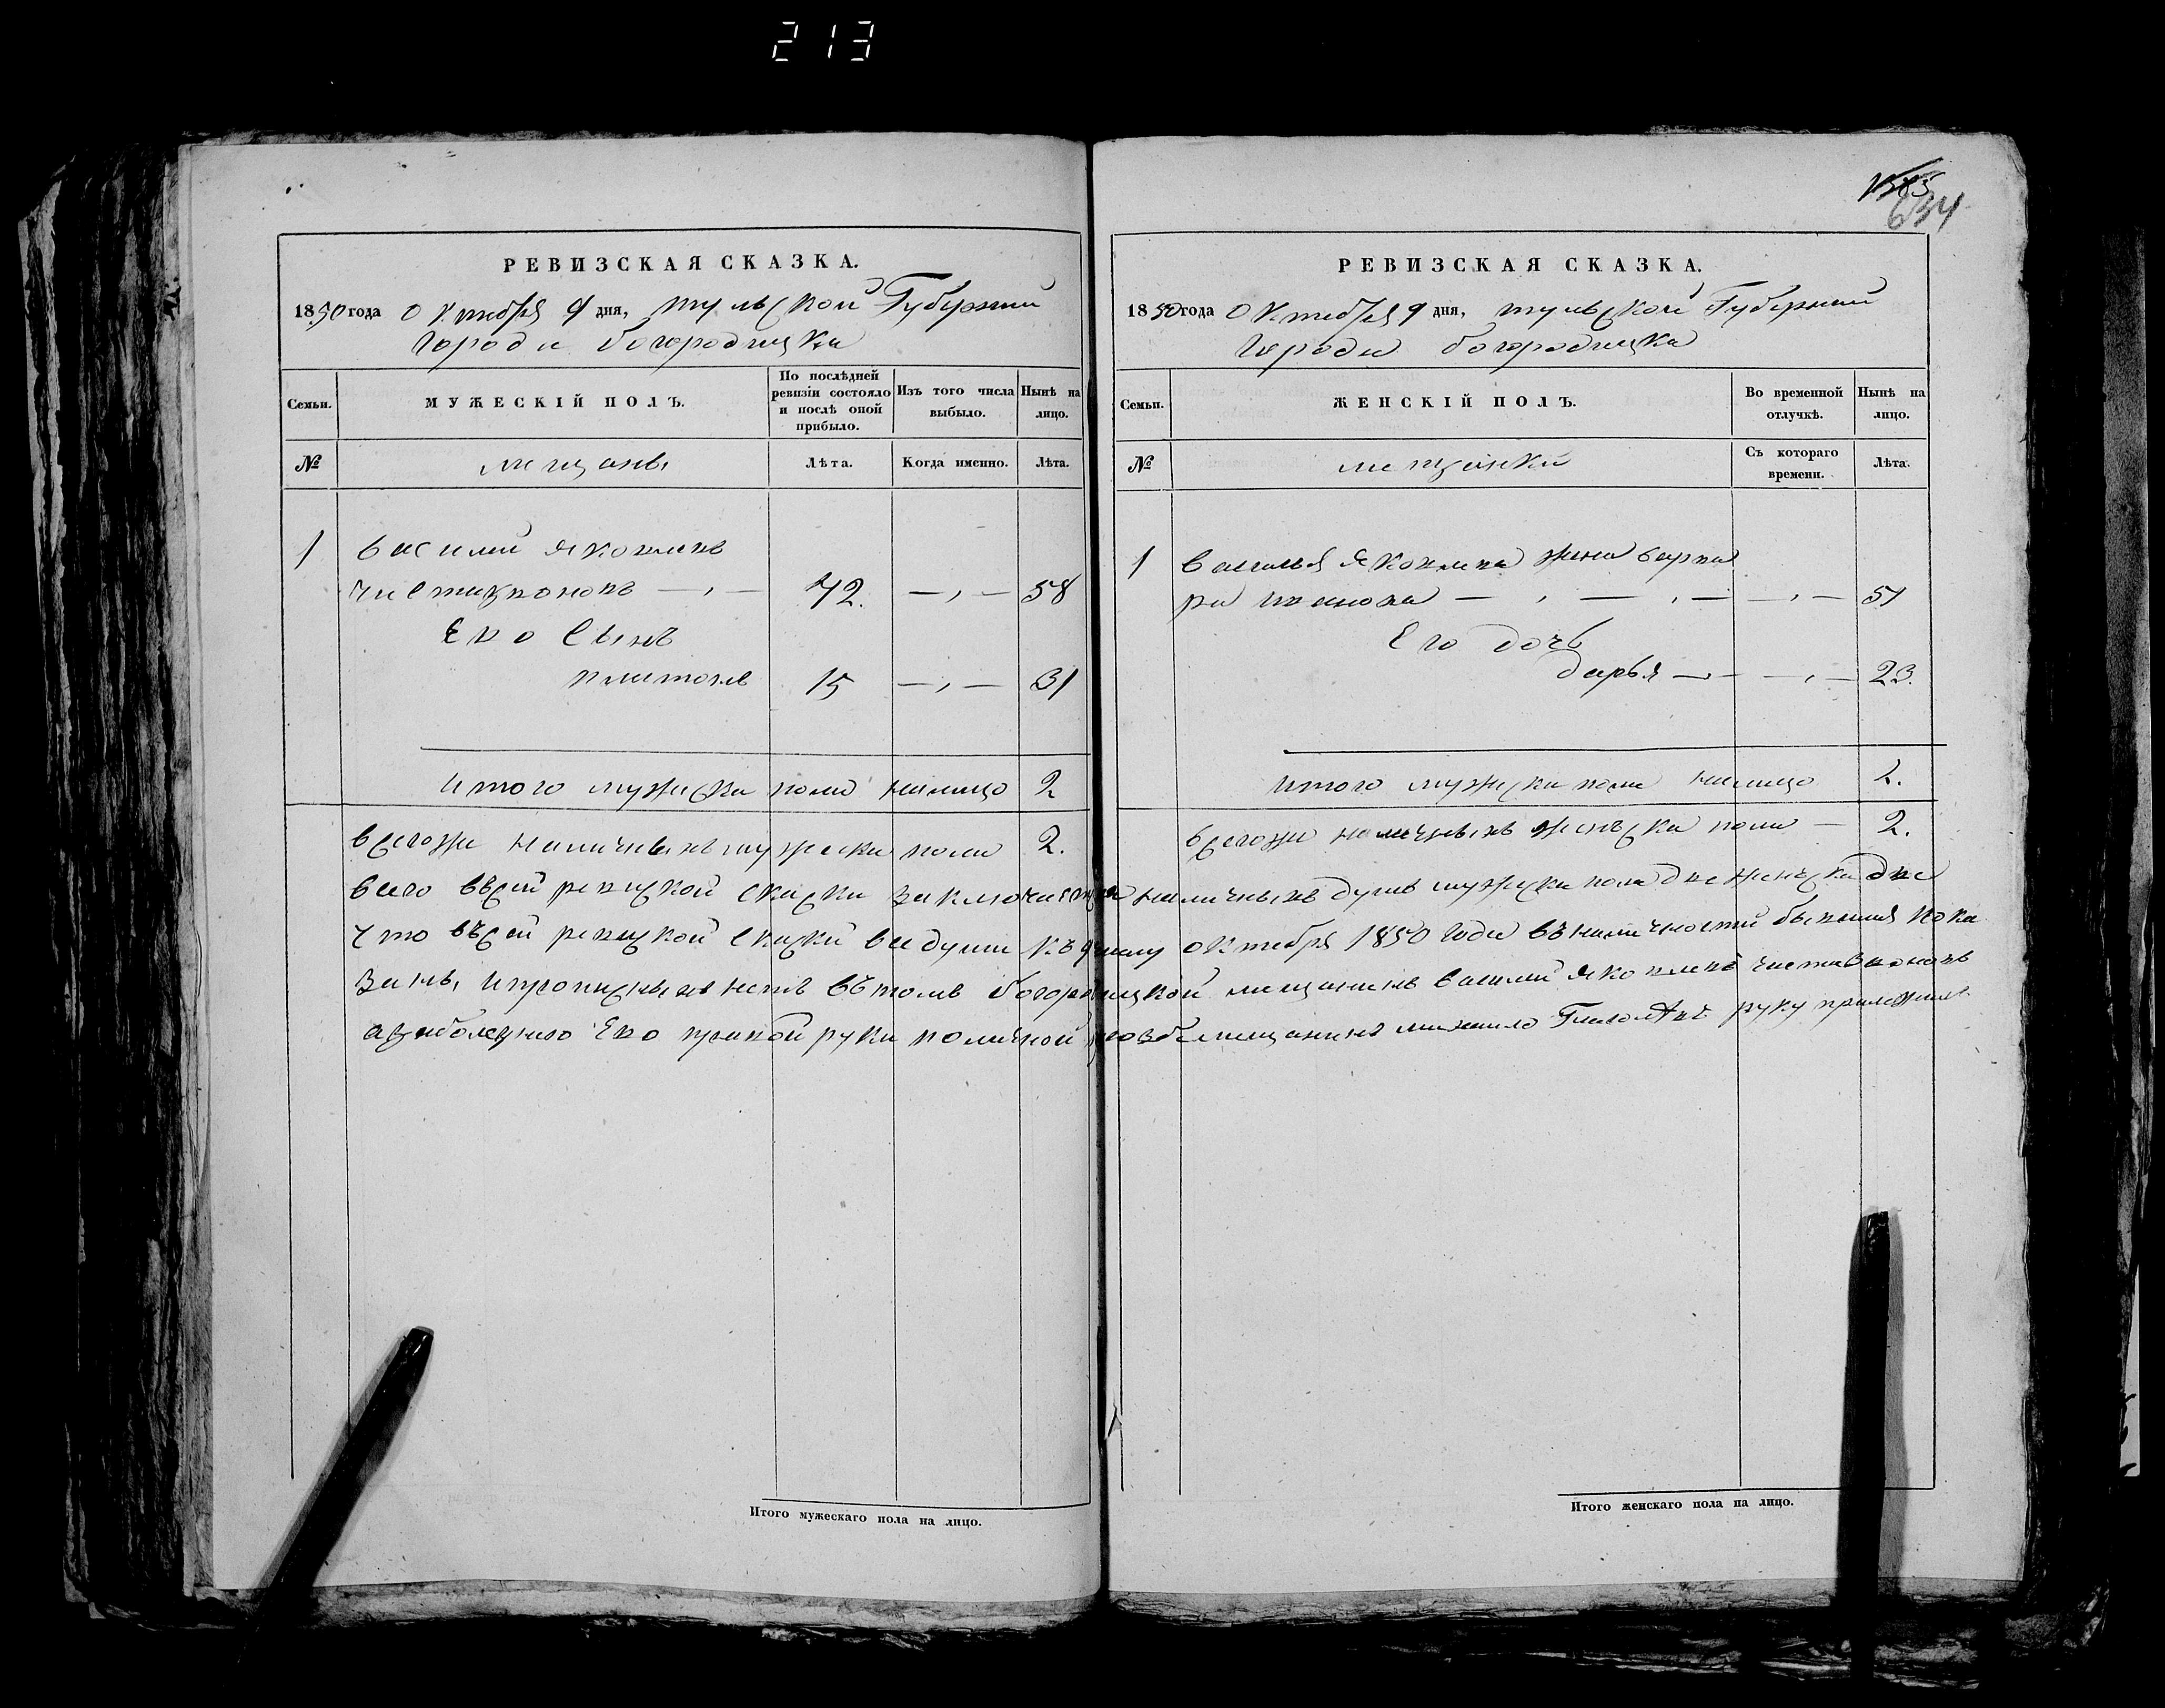 213
1385
634
РЕВИЗСКАЯ СКАЗКА.
1850 года Октября 9 дня, тульской Губернии
города богородицка
Семьи.
МУЖЕСКІЙ ПОЛЪ.
По послѣдней ревизіи состояло и послѣ оной прибыло.
Изъ того числа выбыло.
Нынѣ на лицо.
№
мещанъ
Лѣта.
Когда именно.
Лѣта.
1 василий яковлевъ
чистизвоновъ — 42. — 58
Ево Сынъ
платонъ 15 — 31
итого мужеска пола налицо 2
всегоже наличныхъ мужеска пола 2.
РЕВИЗСКАЯ СКАЗКА.
1850 года Октября 9 дня, тульской Губернии
города богородицка
Семьи.
ЖЕНСКІЙ ПОЛЪ.
Во временной отлучкѣ.
Нынѣ на лицо.
№
мещанки
Съ котораго времени.
Лѣта.
1 василья Яковлева жена варва
ра иванова — — — 51
Его дочь
дарья — — 23.
итого мужеска пола налицо 2.
всегоже наличныхъ женъска пола — 2.
всего въсей ревиской скаски заключается наличныхъ душъ мужеска пола две женъска две
что въсей ревиской скаски все души къ 9 числу октября 1850 Года въналичности бывшия пока
заны, ипрописныхъ нетъ вътомъ богородицкой мещанинъ василий яковлевъ чистизвоновъ
азаболезнию Ево правой руки поличной прозбе мещанинъ михаило руку приложилъ
Итого мужескаго пола на лицо.
Итого женскаго пола на лицо.